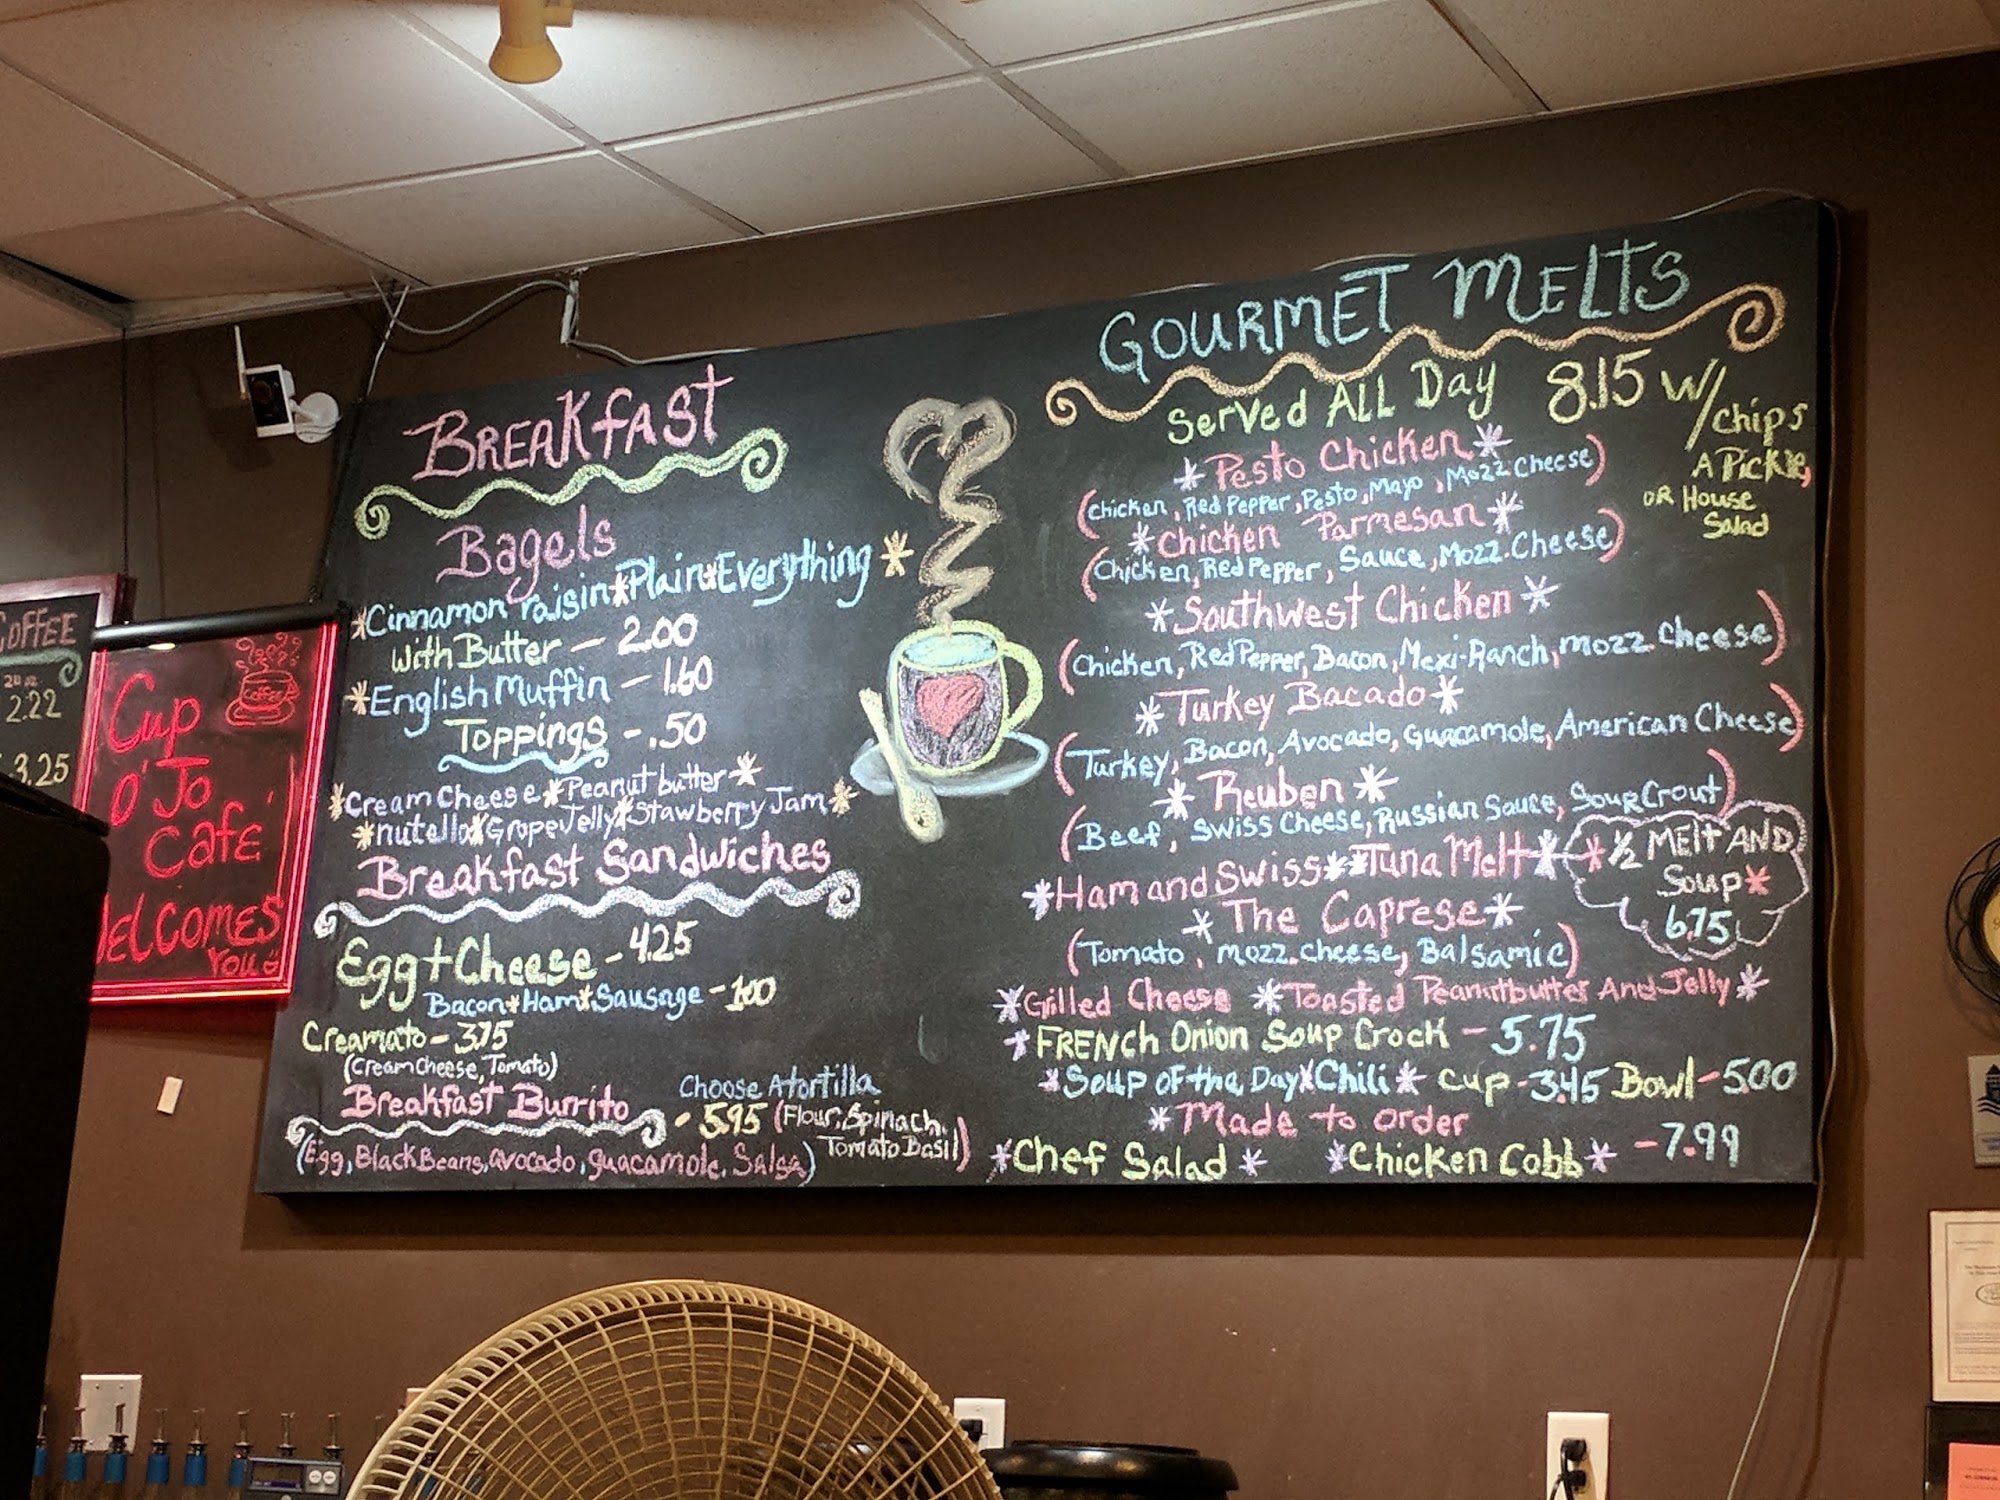 COFFEE
24 oz.
2.22
3.25
Coffee
Cup
O' Jo
Cafe'
Welcomes
You
Breakfast
Bagels
*Cinnamon raisin*Plain*Everything*
With Butter - 2.00
*English Muffin - 1.60
Toppings - .50
*Cream Cheese*Peanut butter*
*nutella*Grape Jelly*Stawberry Jam*
Breakfast Sandwiches
Egg + Cheese - 4.25
Bacon*Ham*Sausage - 1.00
Creamato - 3.75
(Cream Cheese, Tomato)
Breakfast Burrito - 5.95
Choose A tortilla
(Flour, Spinach,
Tomato Basil)
(Egg, Black Beans, avocado, guacamole, Salsa)
Gourmet Melts
Served All Day 8.15 w/chips
A Pickle,
OR House
Salad
*Pesto Chicken*
(Chicken, Red Pepper, Pesto, Mayo, Mozz Cheese)
*Chicken Parmesan*
(Chicken, Red Pepper, Sauce, Mozz. Cheese)
*Southwest Chicken*
(Chicken, Red Pepper, Bacon, Mexi-Ranch, Mozz Cheese)
*Turkey Bacado*
(Turkey, Bacon, Avocado, Guacamole, American Cheese)
*Reuben*
(Beef, Swiss Cheese, Russian Sauce, Sour Crout)
*Ham and Swiss**Tuna Melt*
*½ Melt AND
Soup*
6.75
*The Caprese*
(Tomato, Mozz. Cheese, Balsamic)
*Grilled Cheese *Toasted Peanutbutter And Jelly*
*French Onion Soup Crock - 5.75
*Soup of the Day*Chili* Cup - 3.45 Bowl - 5.00
*Made to order
*Chef Salad* *Chicken Cobb* - 7.99